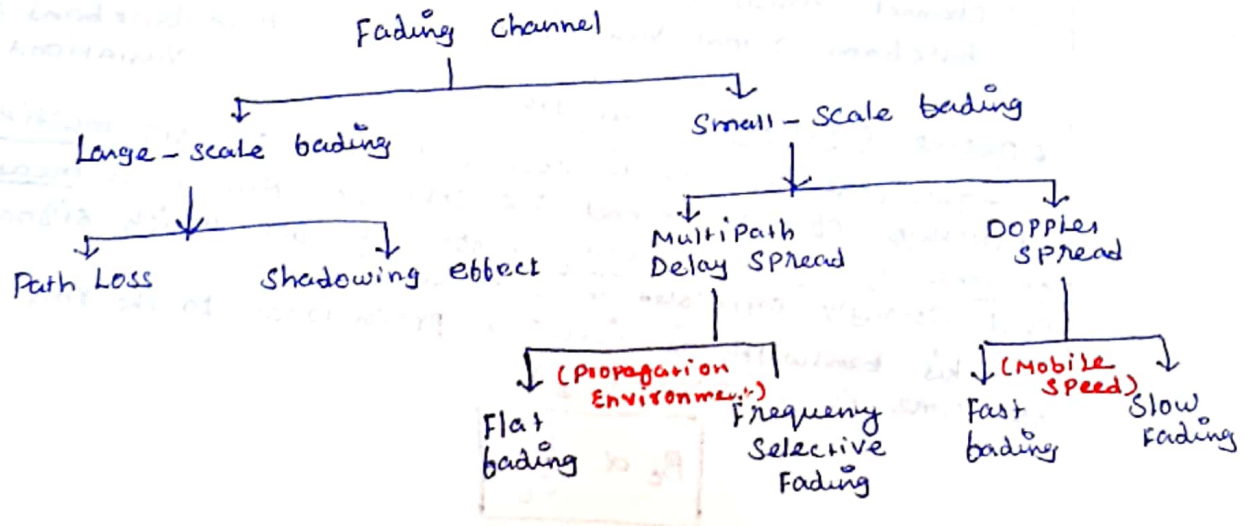 Fading Channel
Large - scale fading
Small - scale fading
Path Loss
Shadowing effect
Multipath
Delay Spread
Doppler
Spread
(Propagation
Environment)
(Mobile
Speed)
Flat
fading
Frequency
Selective
Fading
Fast
fading
Slow
Fading